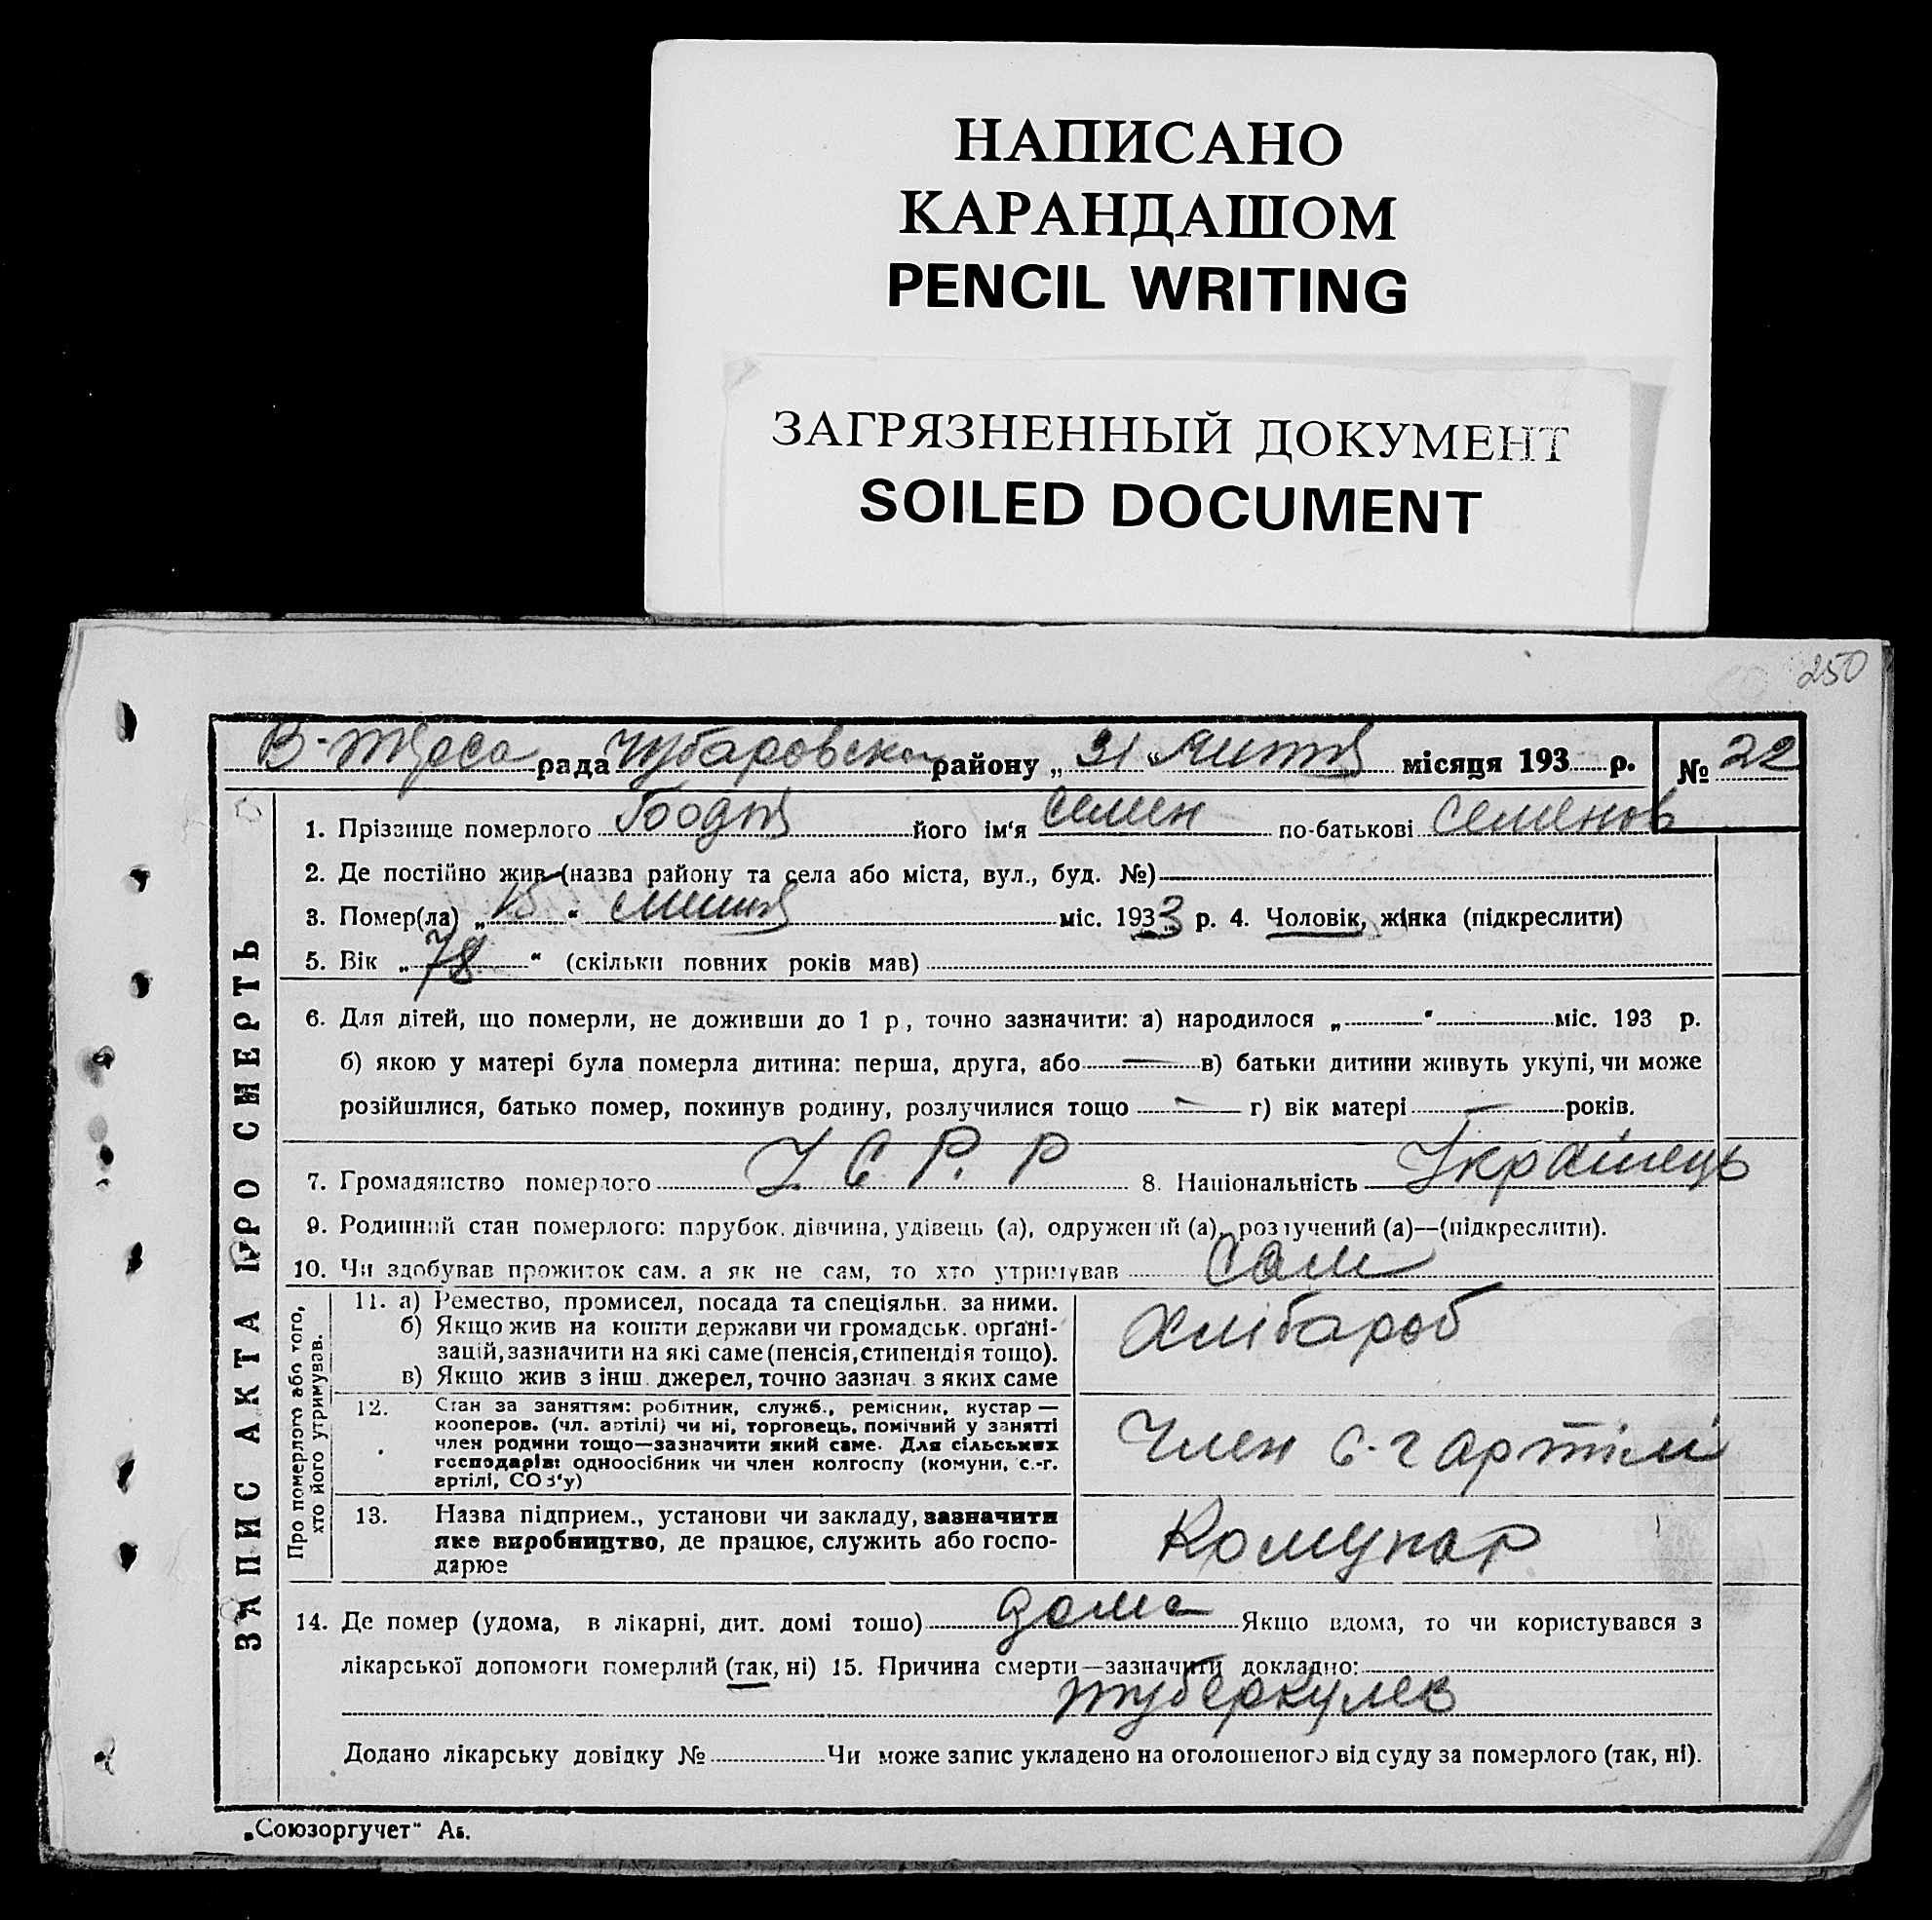 НАПИСАНО
КАРАНДАШОМ
PENCIL WRITING
ЗАГРЯЗНЕННЫЙ ДОКУМЕНТ
SOILED DOCUMENT
250
рада Чубаровсько району „31“ місяця 193 р. № 22
ЗАПИС АКТА ПРО СМЕРТЬ
1. Прізвище померлого його ім'я Семен по-батькові Семенов
2. Де постійно жив (назва району та села або міста, вул., буд. №)
3. Помер(ла) „15“ міс. 1933 р. 4. Чоловік, жінка (підкреслити)
5. Вік „78“ (скільки повних років мав)
6. Для дітей, що померли, не доживши до 1 р, точно зазначити: а) народилося „ “ міс. 193 р.
б) якою у матері була померла дитина: перша, друга, або в) батьки дитини живуть укупі, чи може
розійшлися, батько помер, покинув родину, розлучилися тощо г) вік матері років.
7. Громадянство померлого У.С.Р.Р 8. Національність Українець
9. Родинний стан померлого: парубок, дівчина, удівець (а), одружений (а), розлучений (а)—(підкреслити).
10. Чи здобував прожиток сам, а як не сам, то хто утримував Сам
Про померлого або того,
хто його утримував.
11. а) Ремество, промисел, посада та спеціяльн. за ними.
б) Якщо жив на кошти держави чи громадськ. органі-
зацій, зазначити на які саме (пенсія, стипендія тощо).
в) Якщо жив з інш. джерел, точно зазнач. з яких саме
Хлібароб
12. Стан за заняттям: робітник, служб., ремісник, кустар—
кооперов. (чл. артілі) чи ні, торговець, помічний у занятті
член родини тощо—зазначити який саме. Для сільських
господарів: одноосібник чи член колгоспу (комуни, с.-г.
артілі, СОЗ'у)
Член с-г артілі
13. Назва підприєм., установи чи закладу, зазначити
яке виробництво, де працює, служить або госпо-
дарює
Комунар
14. Де помер (удома, в лікарні, дит. домі тощо) дома Якщо вдома, то чи користувався з
лікарської допомоги померлий (так, ні) 15. Причина смерти—зазначити докладно:
туберкулев
Додано лікарську довідку № Чи може запис укладено на оголошеного від суду за померлого (так, ні).
„Союзоргучет“ Аб.